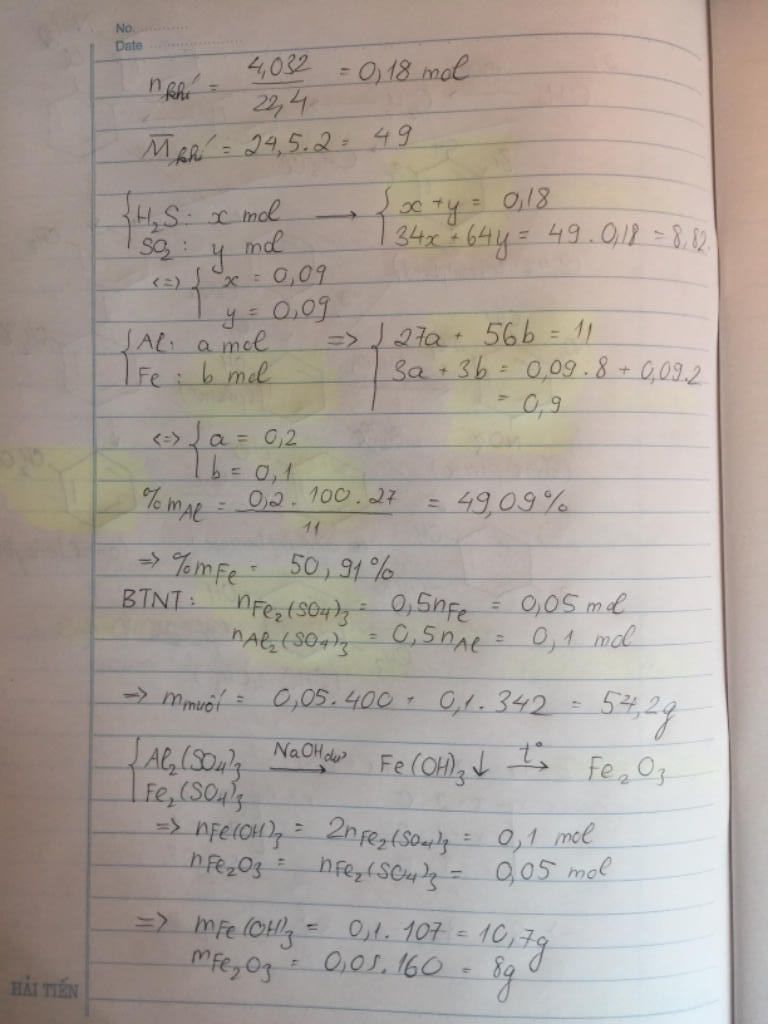 No. ............
Date ........................
n khí = 4,032 / 22,4 = 0,18 mol
M̅ khí = 24,5.2 = 49
{ H₂S : x mol → { x + y = 0,18
SO₂ : y mol 34x + 64y = 49 . 0,18 = 8,82.
<=> { x = 0,09
y = 0,09
{ Al : a mol => { 27a + 56b = 11
Fe : b mol 3a + 3b = 0,09.8 + 0,09.2
= 0,9
<=> { a = 0,2
b = 0,1
%mAl = 0,2 . 100 . 27 / 11 = 49,09%
=> %mFe = 50,91%
BTNT : nFe₂(SO₄)₃ = 0,5nFe = 0,05 mol
nAl₂(SO₄)₃ = 0,5nAl = 0,1 mol
=> m muối = 0,05.400 + 0,1.342 = 54,2g
{ Al₂(SO₄)₃ NaOH dư → Fe(OH)₃↓ t° → Fe₂O₃
Fe₂(SO₄)₃
=> nFe(OH)₃ = 2nFe₂(SO₄)₃ = 0,1 mol
nFe₂O₃ = nFe₂(SO₄)₃ = 0,05 mol
=> mFe(OH)₃ = 0,1.107 = 10,7g
mFe₂O₃ = 0,05.160 = 8g
HẢI TIẾN